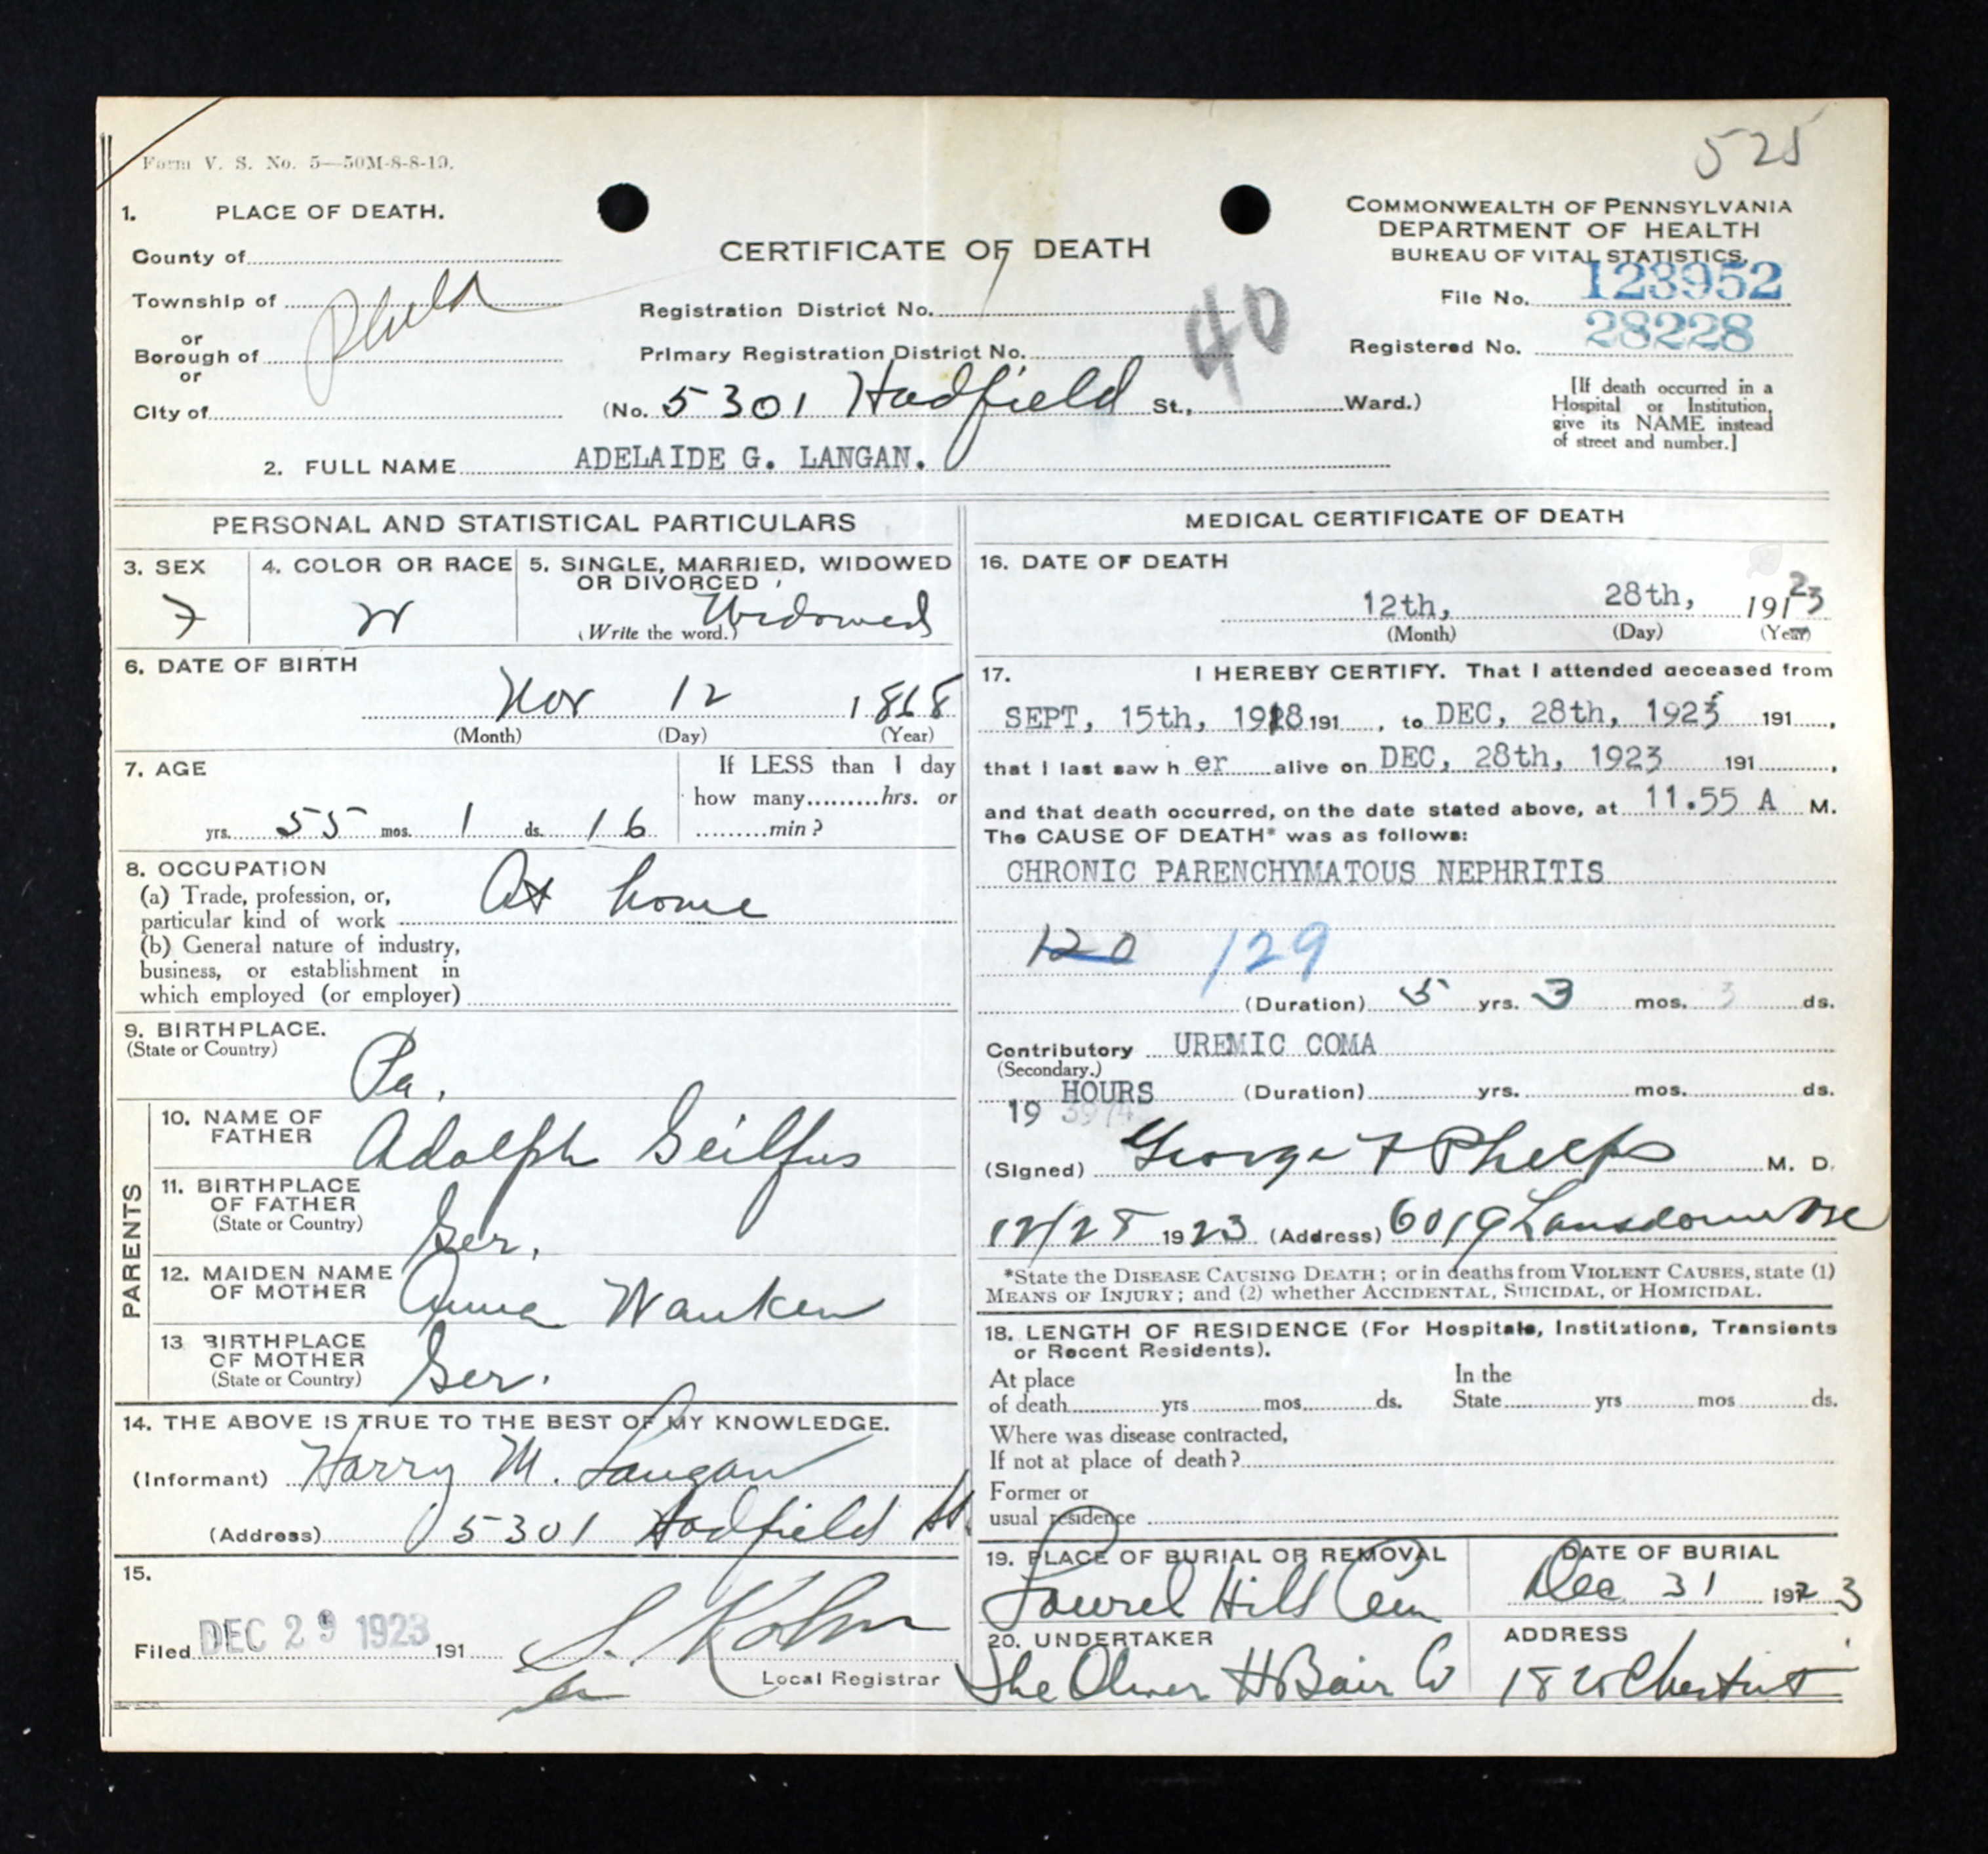 525
Form V. S. No. 5—50M-8-8-19.
1. PLACE OF DEATH.
County of
Township of
or
Borough of
or
City of
Phila
CERTIFICATE OF DEATH
Registration District No.
Primary Registration District No.
40
(No. 5301 Hadfield St., Ward.)
COMMONWEALTH OF PENNSYLVANIA
DEPARTMENT OF HEALTH
BUREAU OF VITAL STATISTICS.
File No. 123952
Registered No. 28228
[If death occurred in a
Hospital or Institution,
give its NAME instead
of street and number.]
2. FULL NAME ADELAIDE G. LANGAN.
PERSONAL AND STATISTICAL PARTICULARS
3. SEX
F
4. COLOR OR RACE
W
5. SINGLE, MARRIED, WIDOWED
OR DIVORCED
(Write the word.) Widowed
6. DATE OF BIRTH
Nov 12 1868
(Month) (Day) (Year)
7. AGE
yrs. 55 mos. 1 ds. 16
If LESS than 1 day
how many.........hrs. or
.........min?
8. OCCUPATION
(a) Trade, profession, or,
particular kind of work
At home
(b) General nature of industry,
business, or establishment in
which employed (or employer)
9. BIRTHPLACE.
(State or Country)
Pa.
PARENTS
10. NAME OF
FATHER
Adolph Geilfus
11. BIRTHPLACE
OF FATHER
(State or Country)
Ger.
12. MAIDEN NAME
OF MOTHER
Anna Wanken
13 BIRTHPLACE
OF MOTHER
(State or Country)
Ger.
14. THE ABOVE IS TRUE TO THE BEST OF MY KNOWLEDGE.
(Informant) Harry M. Langan
(Address) 5301 Hadfield St.
15.
Filed DEC 29 1923 191
Local Registrar
MEDICAL CERTIFICATE OF DEATH
16. DATE OF DEATH
12th, 28th, 1923
(Month) (Day) (Year)
17. I HEREBY CERTIFY. That I attended deceased from
SEPT, 15th, 1918 191 , to DEC, 28th, 1923 191 ,
that I last saw h er alive on DEC, 28th, 1923 191 ,
and that death occurred, on the date stated above, at 11.55 A M.
The CAUSE OF DEATH* was as follows:
CHRONIC PARENCHYMATOUS NEPHRITIS
120 129
(Duration) 5 yrs. 3 mos. 3 ds.
Contributory UREMIC COMA
(Secondary.)
19 HOURS (Duration) yrs. mos. ds.
(Signed) George F Phelps M. D.
12/28 1923 (Address) 6019 Lansdowne Ave
*State the DISEASE CAUSING DEATH; or in deaths from VIOLENT CAUSES, state (1)
MEANS OF INJURY; and (2) whether ACCIDENTAL, SUICIDAL, or HOMICIDAL.
18. LENGTH OF RESIDENCE (For Hospitals, Institutions, Transients
or Recent Residents).
At place
of death yrs mos. ds.
In the
State yrs mos ds.
Where was disease contracted,
If not at place of death?
Former or
usual residence
19. PLACE OF BURIAL OR REMOVAL
Laurel Hill Cem
DATE OF BURIAL
Dec 31 1923
20. UNDERTAKER
The Oliver H Bair Co
ADDRESS
1820 Chestnut